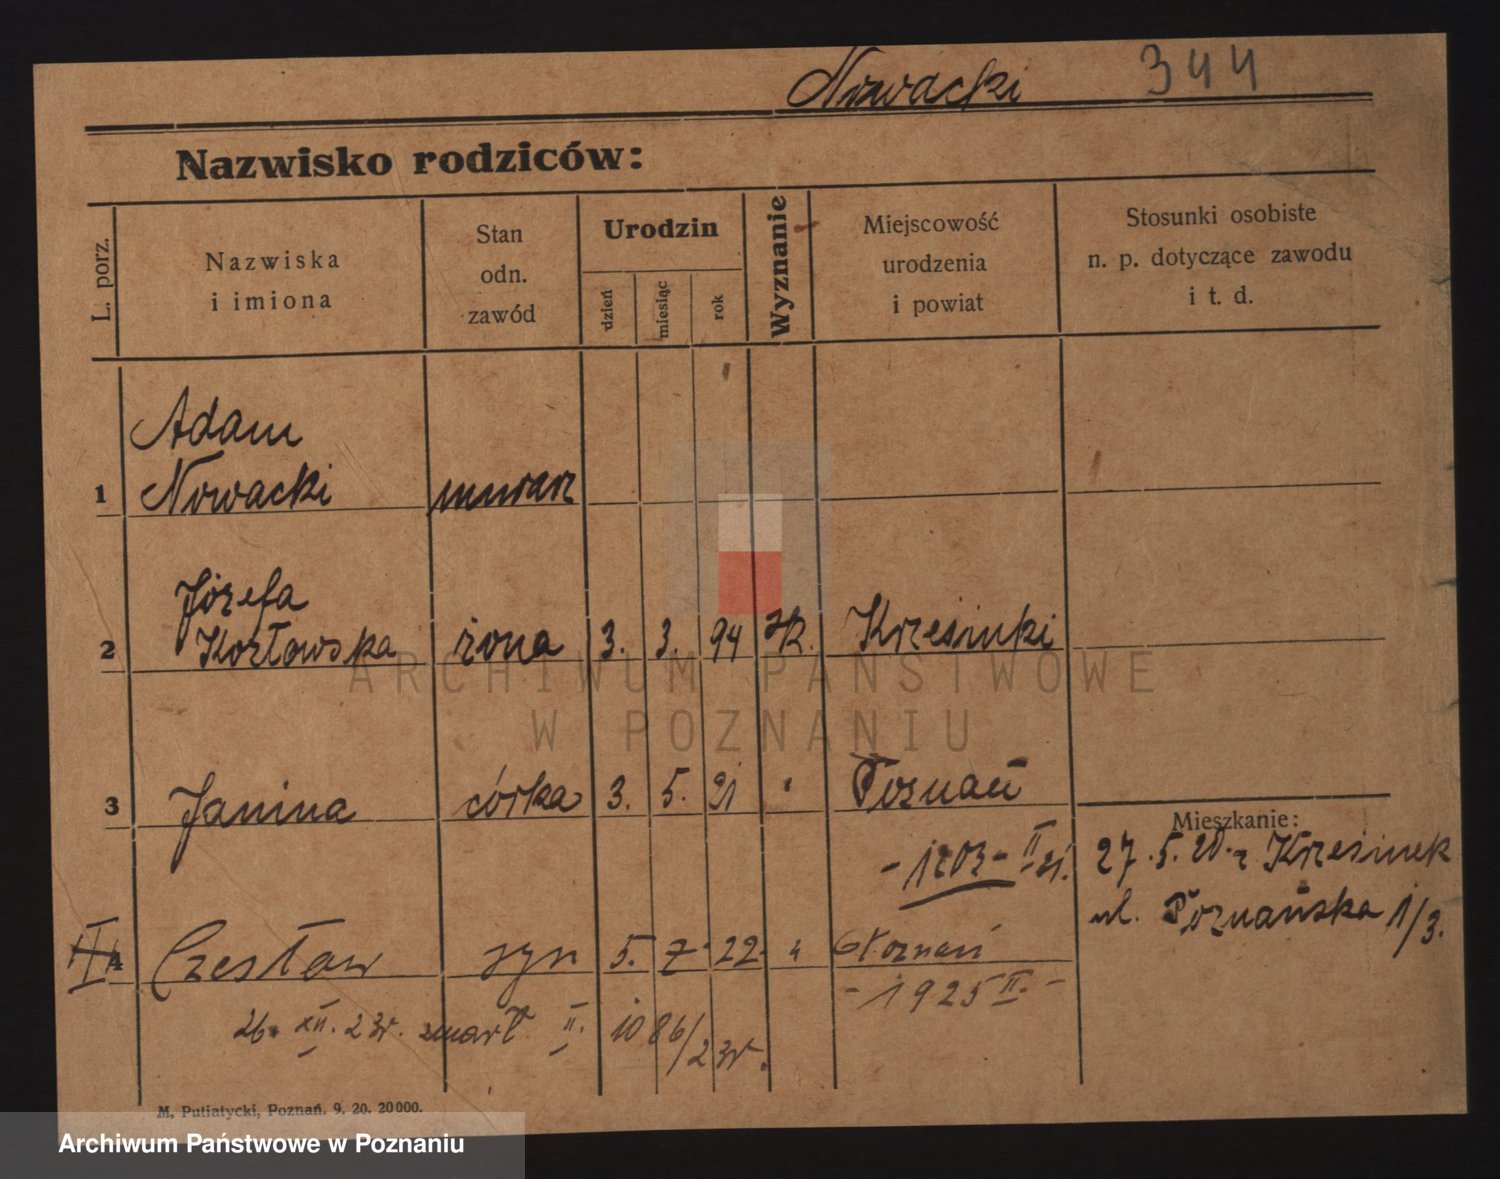 Nowacki 344
Nazwisko rodziców:
L. porz.
Nazwiska
i imiona
Stan
odn.
zawód
Urodzin
dzień
miesiąc
rok
Wyznanie
Miejscowość
urodzenia
i powiat
Stosunki osobiste
n. p. dotyczące zawodu
i t. d.
Adam
1 Nowacki murarz
Józefa
2 Kozłowska żona 3. 3. 94 rk. Krzesinki
ARCHIWUM PAŃSTWOWE
W POZNANIU
3 Janina córka 3. 5. 21 " Poznań
Mieszkanie:
- 1203 - II 21.
27.5.20. z Krzesinek
ul. Poznańska 1/3.
4 Czesław syn 5. 7. 22. " Poznań
- 1925 II. -
26. XII. 23r. zmarł II. 1086/23r.
M. Putiatycki, Poznań. 9. 20. 20000.
Archiwum Państwowe w Poznaniu